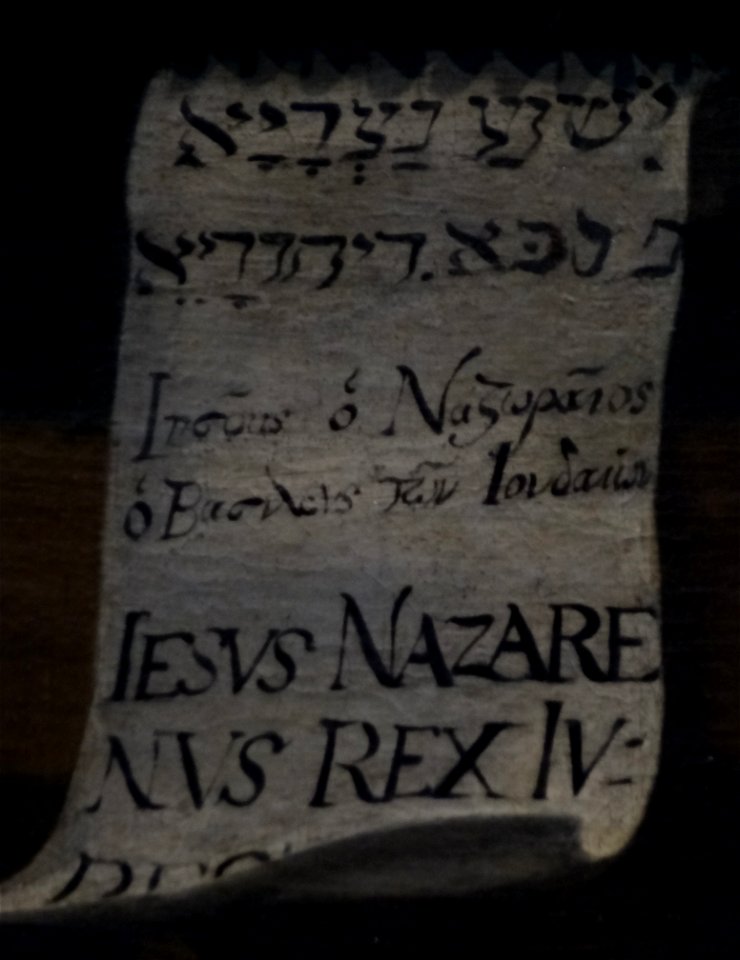 יִשׁוּעַ נַצְרָיַיא
מלכּא .דיהודָיֵא
Ιησοῦς ὁ Ναζωραῖος
ὁ Βασιλεὺς τῶν Ιουδαίων
IESVS NAZARE
NVS REX IV=